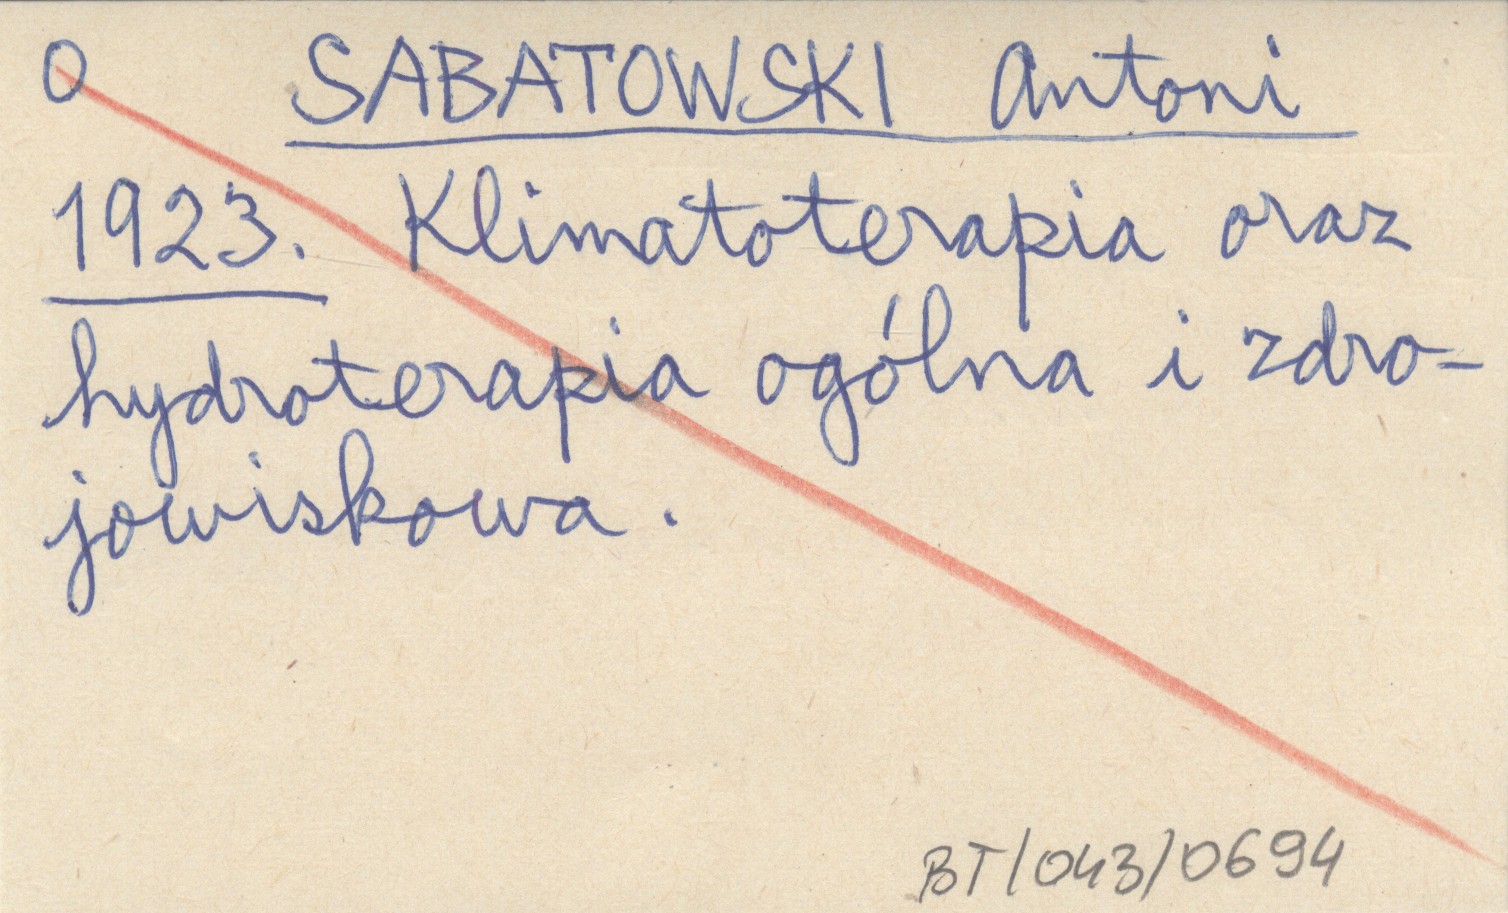 O SABATOWSKI Antoni
1923. Klimatoterapia oraz
hydroterapia ogólna i zdro-
jowiskowa.
BT/043/0694